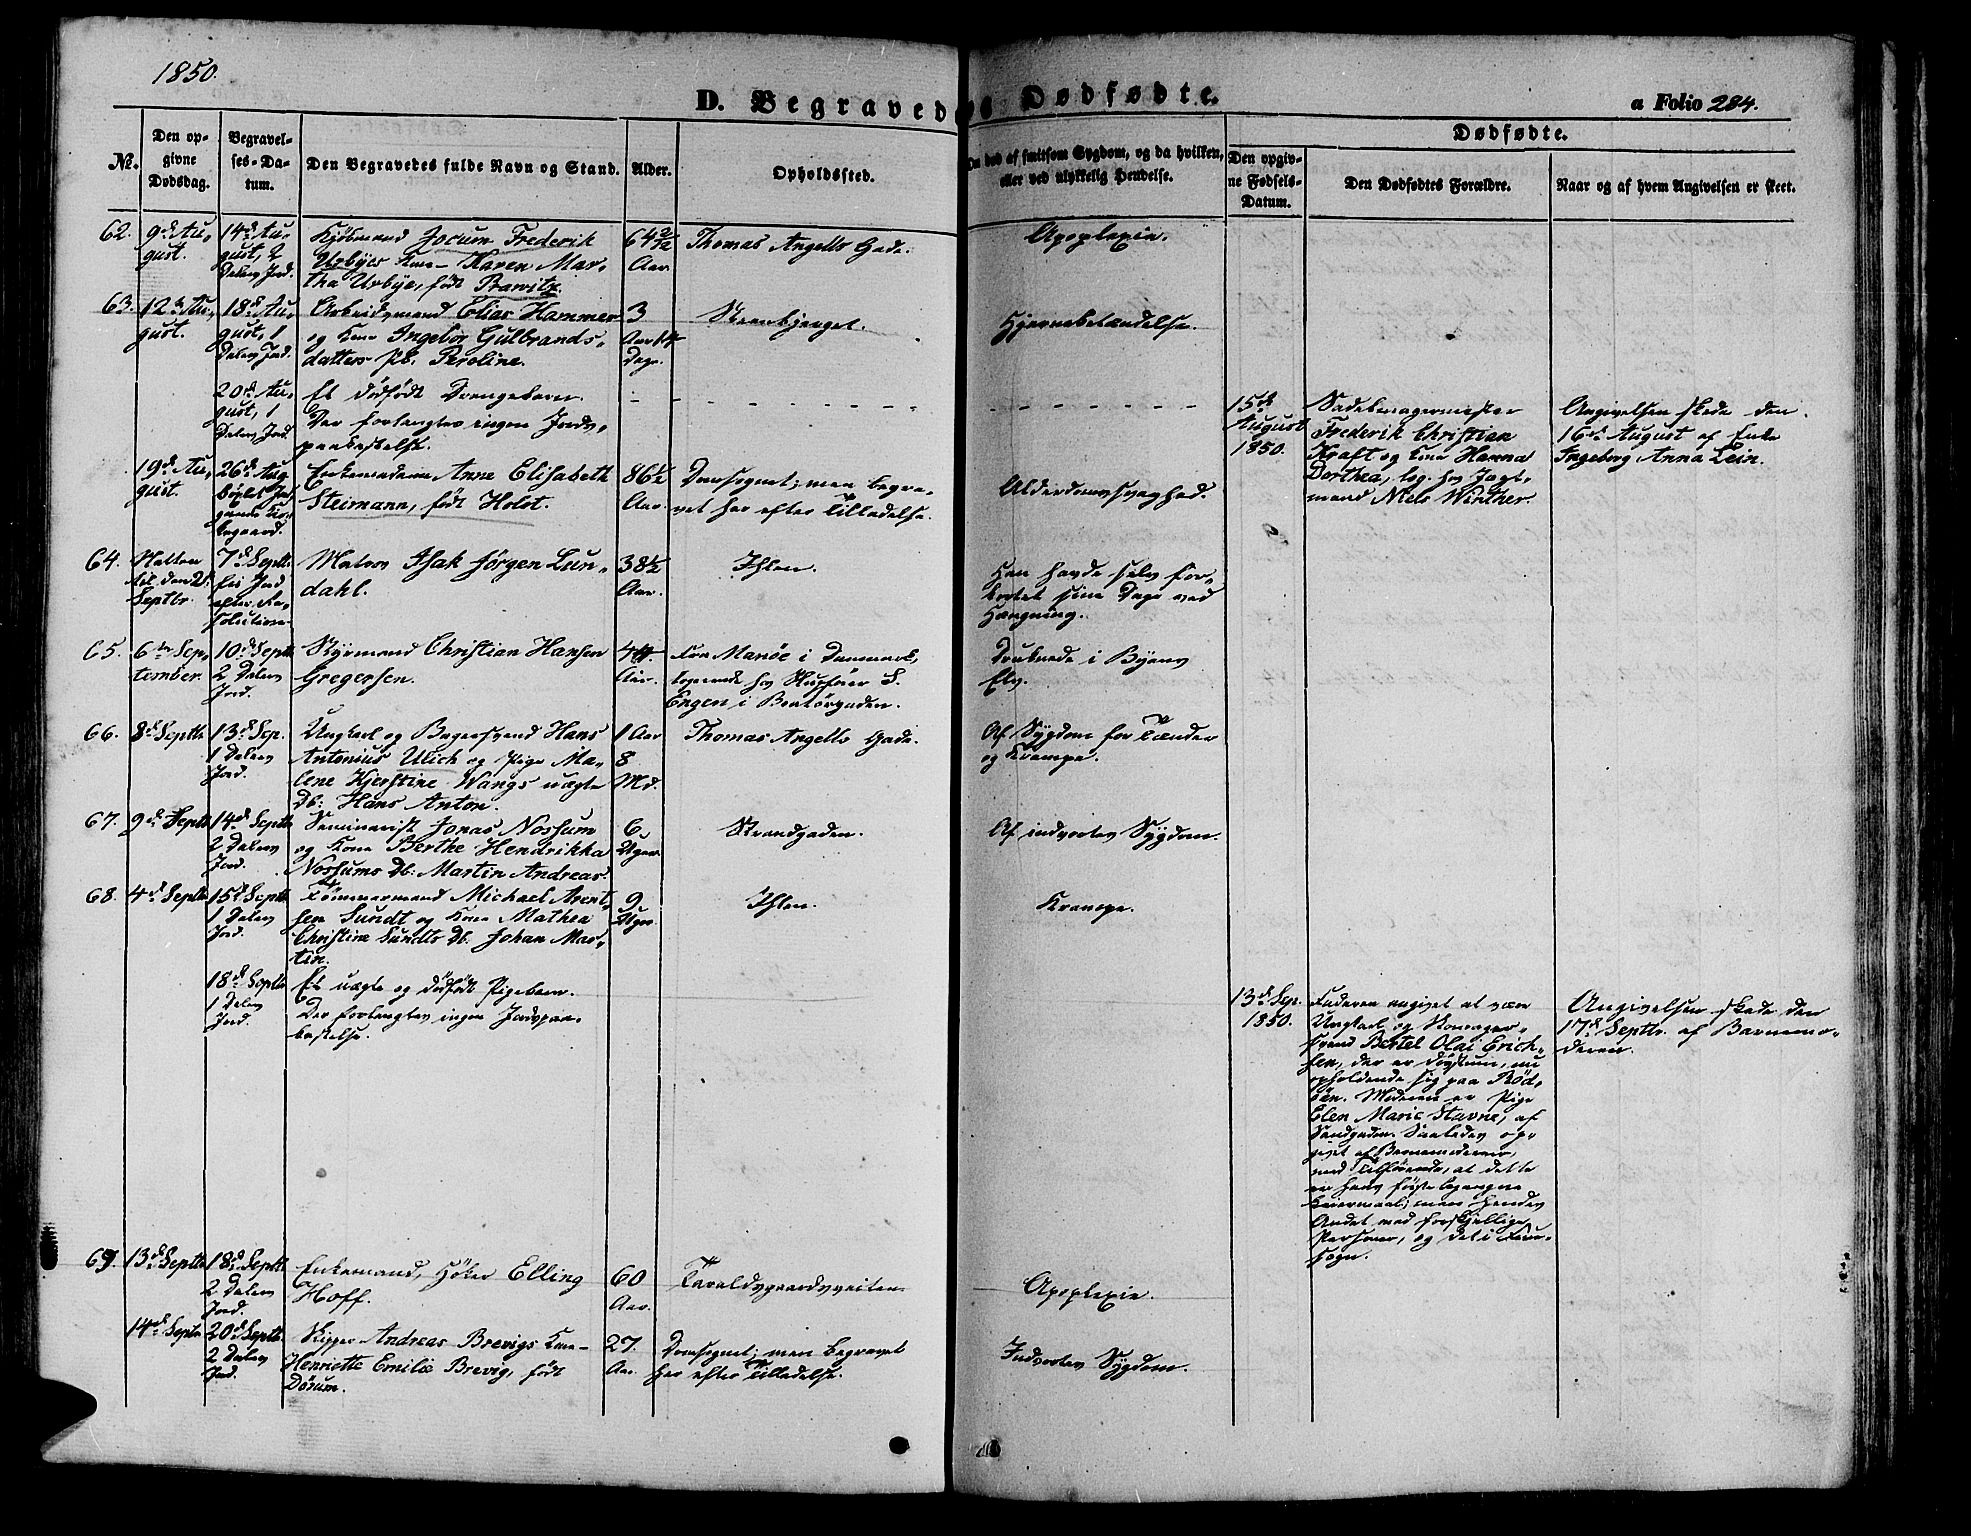 1850.
D. Begravede og Dødfødte.
a Folio 284.
No.
Den op-
givne
Dødsdag.
Begravel-
ses-Da-
tum.
Den Begravedes fulde Navn og Stand.
Alder.
Opholdssted.
død af smitsom Sygdom, og da hvilken,
eller ved ulykkelig Hendelse.
Dødfødte.
Den opgiv-
ne Fødsels-
Datum.
Den Dødfødtes Forældre.
Naar og af hvem Angivelsen er skeet.
62.
9de Au-
gust.
14de Au-
gust, 2
Delers Jord.
Kjøbmand Jocum Frederik
Urbyes Kone Karen Mar-
tha Urbye, født Brawitz.
64 2/12
Aar.
Thomas Angells Gade.
Apoplexie.
63.
12te Au-
gust.
18de Au-
gust, 1
Delers Jord.
Arbeidsmand Elias Hammer
og Kone Ingebor Gulbrands-
datters Pb. Peroline.
3
Aar 14
Dage.
Steenbjerget.
Hjernebetændelse.
20de Au-
gust, 1
Delers Jord.
Et dødfødt Drengebarn.
Der forlangtes ingen Jords-
paakastelse.
15de
August
1850.
Sadelmagermester
Frederik Christian
Kraft og Kone Hanna
Dorthea, log. hos Jagt-
mand Niels Winther.
Angivelsen skede den
16de August af Enke
Ingeborg Anna Lein.
19de Au-
gust.
26de Aug.
Enkemadame Anne Elisabeth
Steimann, født Holst.
86 1/2
Aar.
Domsognet; men begra-
vet her efter Tilladelse.
Alderdomssvaghed.
64.
Natten
til den 2de
Septbr.
7de Septbr.
fri Jord
efter Re-
solution.
Matros Isak Jørgen Lun-
dahl.
38 1/2
Aar.
Ihlen.
Han havde selv for-
kortet sine Dage ved
Hængning.
65.
6te Sep-
tember.
10de Septbr.
2 Delers
Jord.
Styrmand Christian Hansen
Gregersen.
44
Aar.
Fra Manöe i Danmark,
logerende hos
Engen i
Druknede i Byens
Elv.
66.
8de Septbr.
13de Sep.
1 Delers
Jord.
Ungkarl og Bagersvend Hans
Antonius Ulich og Pige Ma-
lene Kjerstine Wangs uægte
Db: Hans Anton.
1 Aar
8
Md.
Thomas Angells Gade.
Af Sygdom for Tænder
og Krampe.
67.
9de Septbr.
14de Septbr.
2 Delers
Jord.
Seminarist Jonas Nossum
og Kone Berthe Hendrikka
Nossums Db: Martin Andreas.
6
Uger.
Strandgaden.
Af indvortes Sygdom.
68.
4de Septbr.
15de Septbr.
1 Delers
Jord.
Tömmermand Michael Arent-
sen Sundt og Kone Mathea
Christine Sundts Db. Johan Mar-
tin.
9
Uger.
Ihlen.
Krampe.
18de Septbr.
1 Delers
Jord.
Et uægte og dødfødt Pigebarn.
Der forlangtes ingen Jordspaa-
kastelse.
13de Sep.
1850.
Faderen angivet at være
Ungkarl og Skomager-
svend Bertel Olai Erich-
sen, der er døvstum, nu
opholdende sig paa Röd-
öen. Moderen er Pige
Elen Marie Stavne, af
Sandgaden. Saaledes op-
givet af Barnemoderen,
med Tilføiende, at dette
er hans første begangne
Leiermaal; men hendes
Andet med forskjellige
Personer, og det i
sogn.
Angivelsen skede den
17de Septbr. af Barnemo-
deren.
69.
13de Septbr.
18de Septbr.
2 Delers
Jord.
Enkemand, Høker Elling
Hoff.
60
Aar.
Taraldsgaardsveiten
Apoplexie.
14de Septbr.
20de Septbr.
2 Delers
Jord.
Skipper Andreas Brevigs Kone
Henriette Emilie Brevig, født
Dörum.
27.
Aar.
Domsognet; men begravet
her efter Tilladelse.
Indvortes Sygdom.